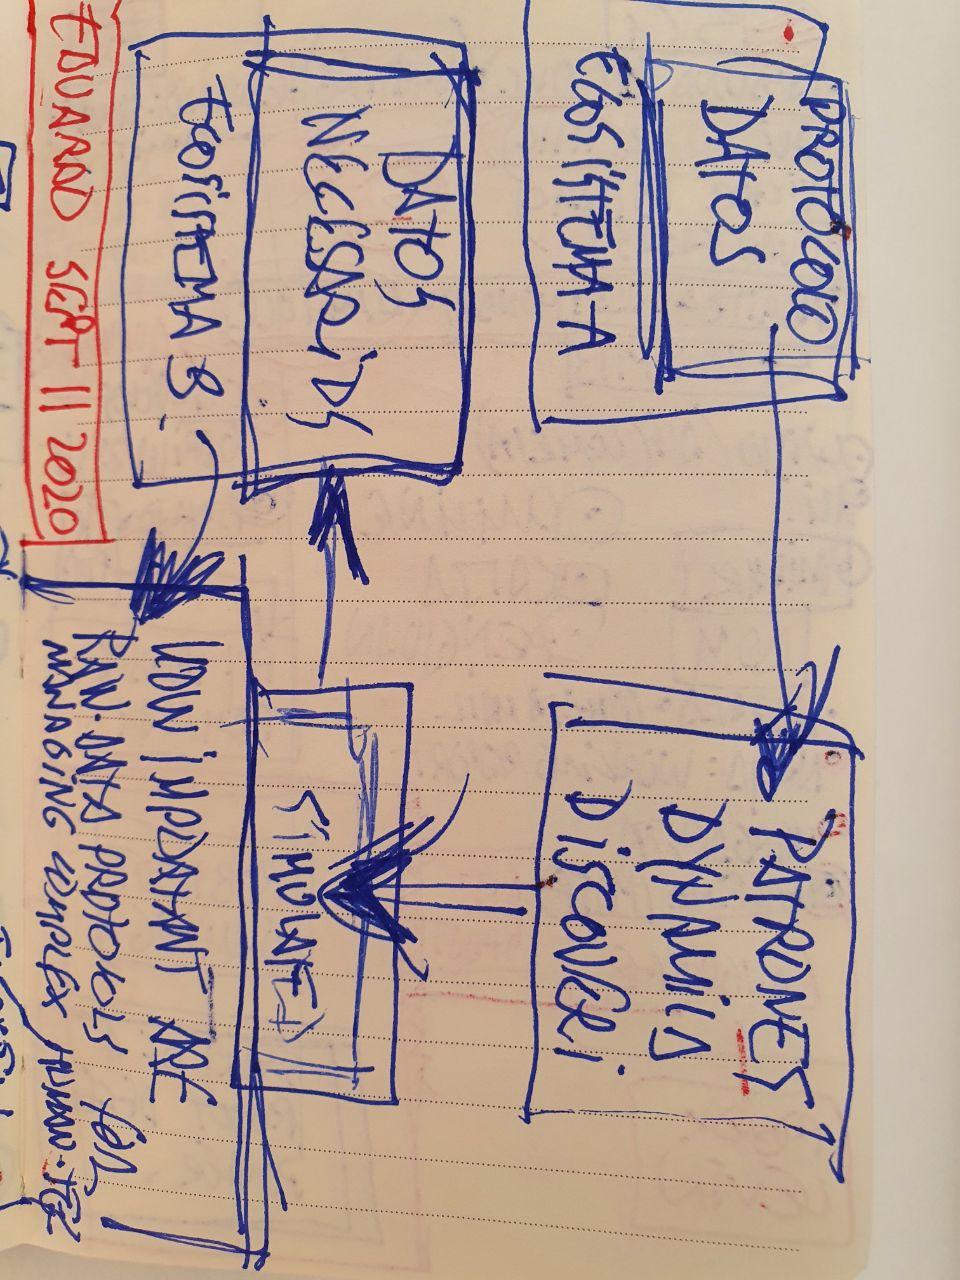 PROTOCOLO
DATOS
ECOSISTEMA A
PATRONES
DYNAMICS
DISCOVER.
DATOS
NECESARIOS
ECOSISTEMA B.
SIMULATED
HOW IMPORTANT ARE
RAW-DATA PROTOCOLS FOR
MANAGING COMPLEX HUMAN-TECH
EDUARDO SEPT 11 2020